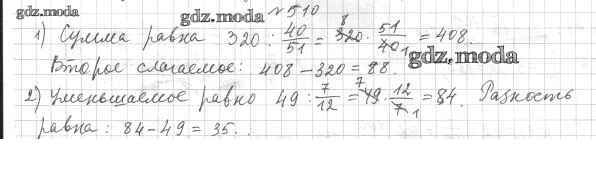 gdz.moda gdz.moda №510
1) Сумма равна 320 : 40/51 = 320 8 · 51/40 1 = 408.
gdz.moda
Второе слагаемое: 408 - 320 = 88.
2) Уменьшаемое равно 49 : 7/12 = 49 7 · 12/7 1 = 84. Разность
равна: 84 - 49 = 35.